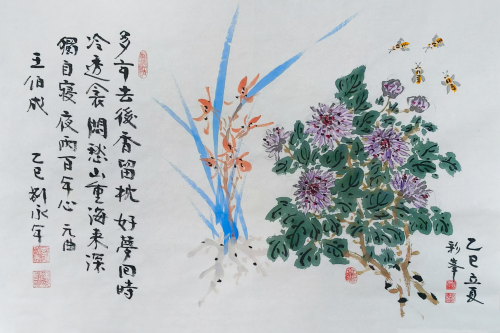 多情去後香留枕 好夢回時
冷透衾 悶愁山重海來深
獨自寢 夜雨百年心 元曲
王伯成 乙巳 劉永年
乙巳立夏
彩峯